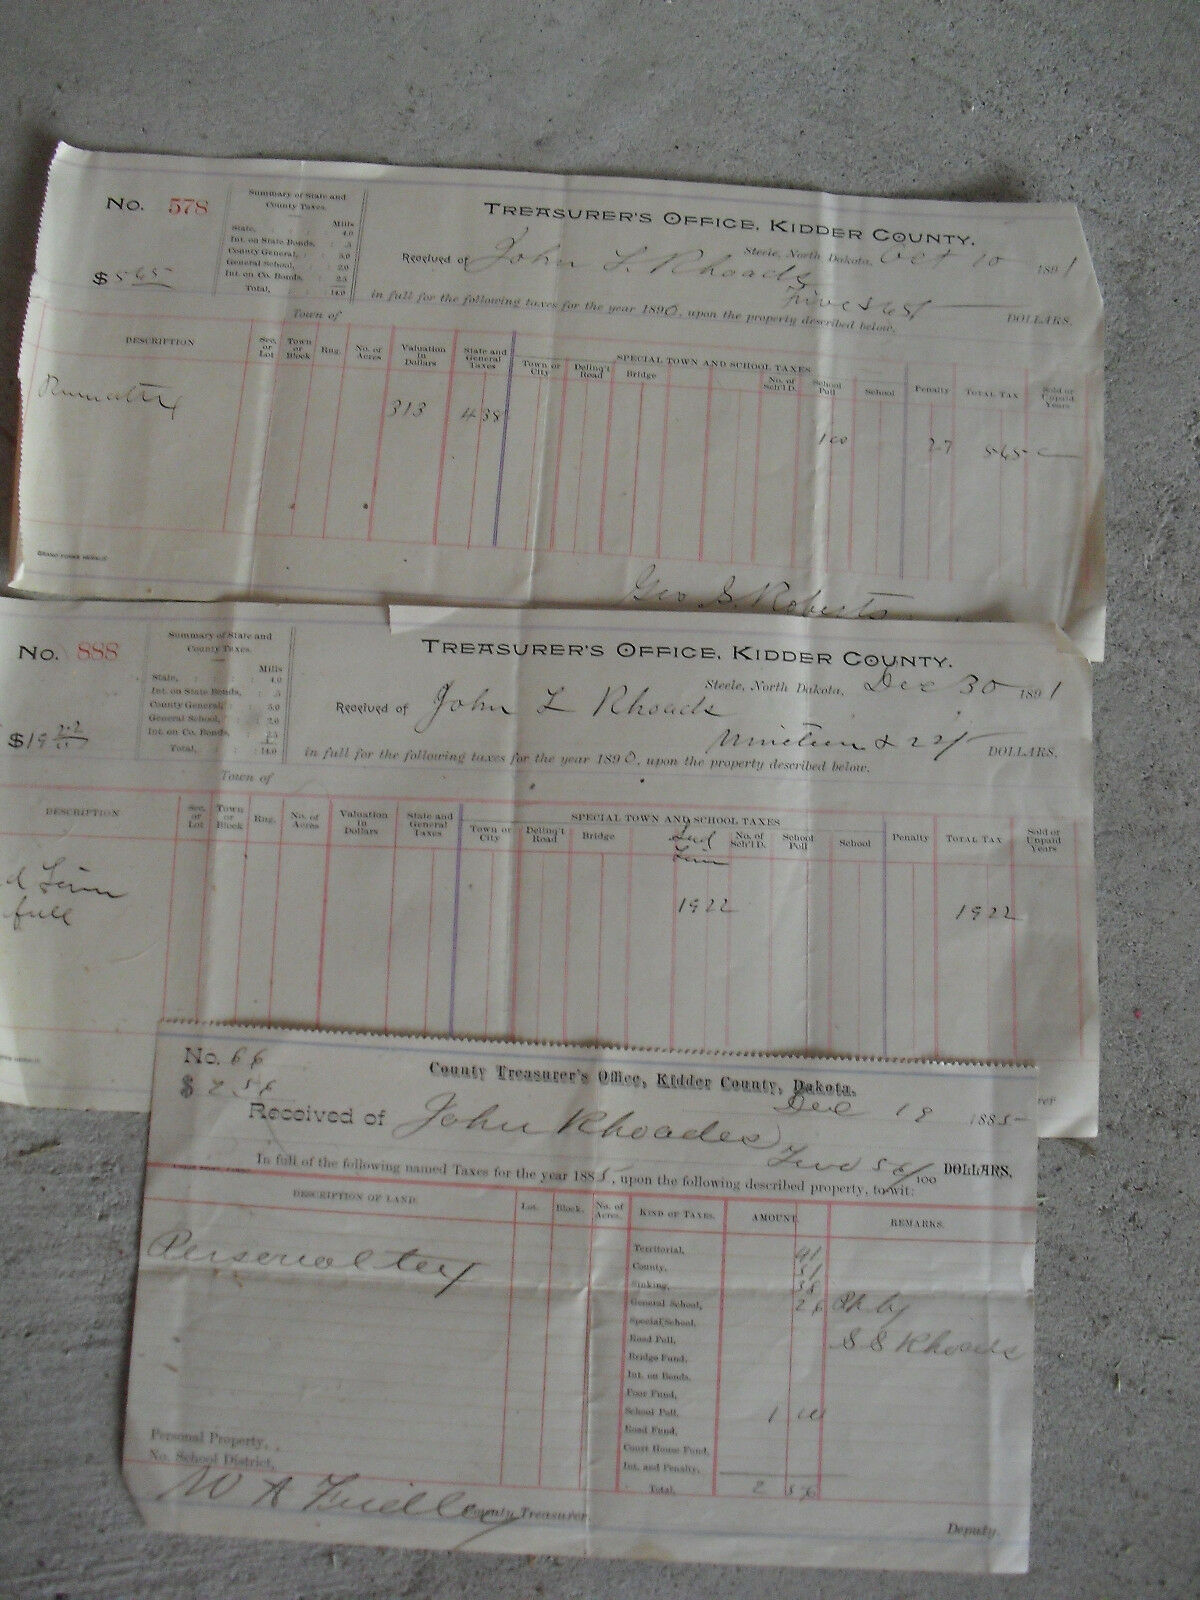 No. 578
Summary of State and
County Taxes.
Mills
State, 4.0
Int. on State Bonds, .5
County General, 5.0
General School, 2.0
Int. on Co. Bonds, 2.5
Total, 14.0
$ 5 65
TREASURER'S OFFICE, KIDDER COUNTY.
Steele, North Dakota, Oct 10 1891
Received of John L. Rhoads
Five & 65/ DOLLARS.
in full for the following taxes for the year 1890, upon the property described below.
Town of
DESCRIPTION Sec. or Lot Town or Block Rng. No. of Acres Valuation in Dollars State and General Taxes SPECIAL TOWN AND SCHOOL TAXES Town or City Delinq't Road Bridge No. of Sch'l D. School Poll School Penalty TOTAL TAX Sold or Unpaid Years
313 4 38 1 00 27 5 65
GRAND FORKS HERALD
Geo S. Roberts
No. 888
Summary of State and
County Taxes.
Mills
State, 4.0
Int. on State Bonds, .5
County General, 5.0
General School, 2.0
Int. on Co. Bonds, 2.5
Total, 14.0
$19 22
TREASURER'S OFFICE, KIDDER COUNTY.
Steele, North Dakota, Dec 30 1891
Received of John L Rhoads
Nineteen & 22/ DOLLARS.
in full for the following taxes for the year 1890, upon the property described below.
Town of
DESCRIPTION Sec. or Lot Town or Block Rng. No. of Acres Valuation in Dollars State and General Taxes SPECIAL TOWN AND SCHOOL TAXES Town or City Delinq't Road Bridge No. of Sch'l D. School Poll School Penalty TOTAL TAX Sold or Unpaid Years
full
19 22 19 22
No. 66
$ 2 56
County Treasurer's Office, Kidder County, Dakota.
Dec 19 1885
Received of John Rhoades
Two 56/100 DOLLARS.
In full of the following named Taxes for the year 1885, upon the following described property, to wit:
DESCRIPTION OF LAND. Lot. Block. No. of Acres. KIND OF TAXES. AMOUNT. REMARKS.
Personal tax
Territorial, 41
County, 51
Sinking, 38
General School, 26 Pd. by
Special School, S S Rhoads
Road Poll,
Bridge Fund,
Int. on Bonds,
Poor Fund,
School Poll, 1 00
Road Fund,
Court House Fund,
Int. and Penalty,
Total, 2 56
Personal Property,
No. School District,
W A Fridley County Treasurer.
Deputy.